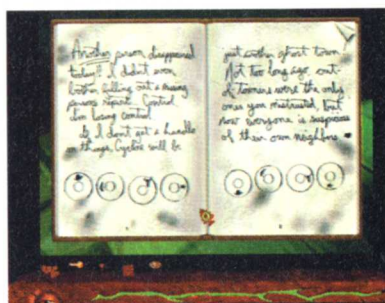 Another person disappeared
today!! I didn't even
bother filling out a missing
persons report. Control
I'm losing control.
If I don't get a handle
on things, Cyclone will be
just another ghost town
Not too long ago, out-
of-towners were the only
ones you mistrusted, but
now everyone is suspicious
of their own neighbors